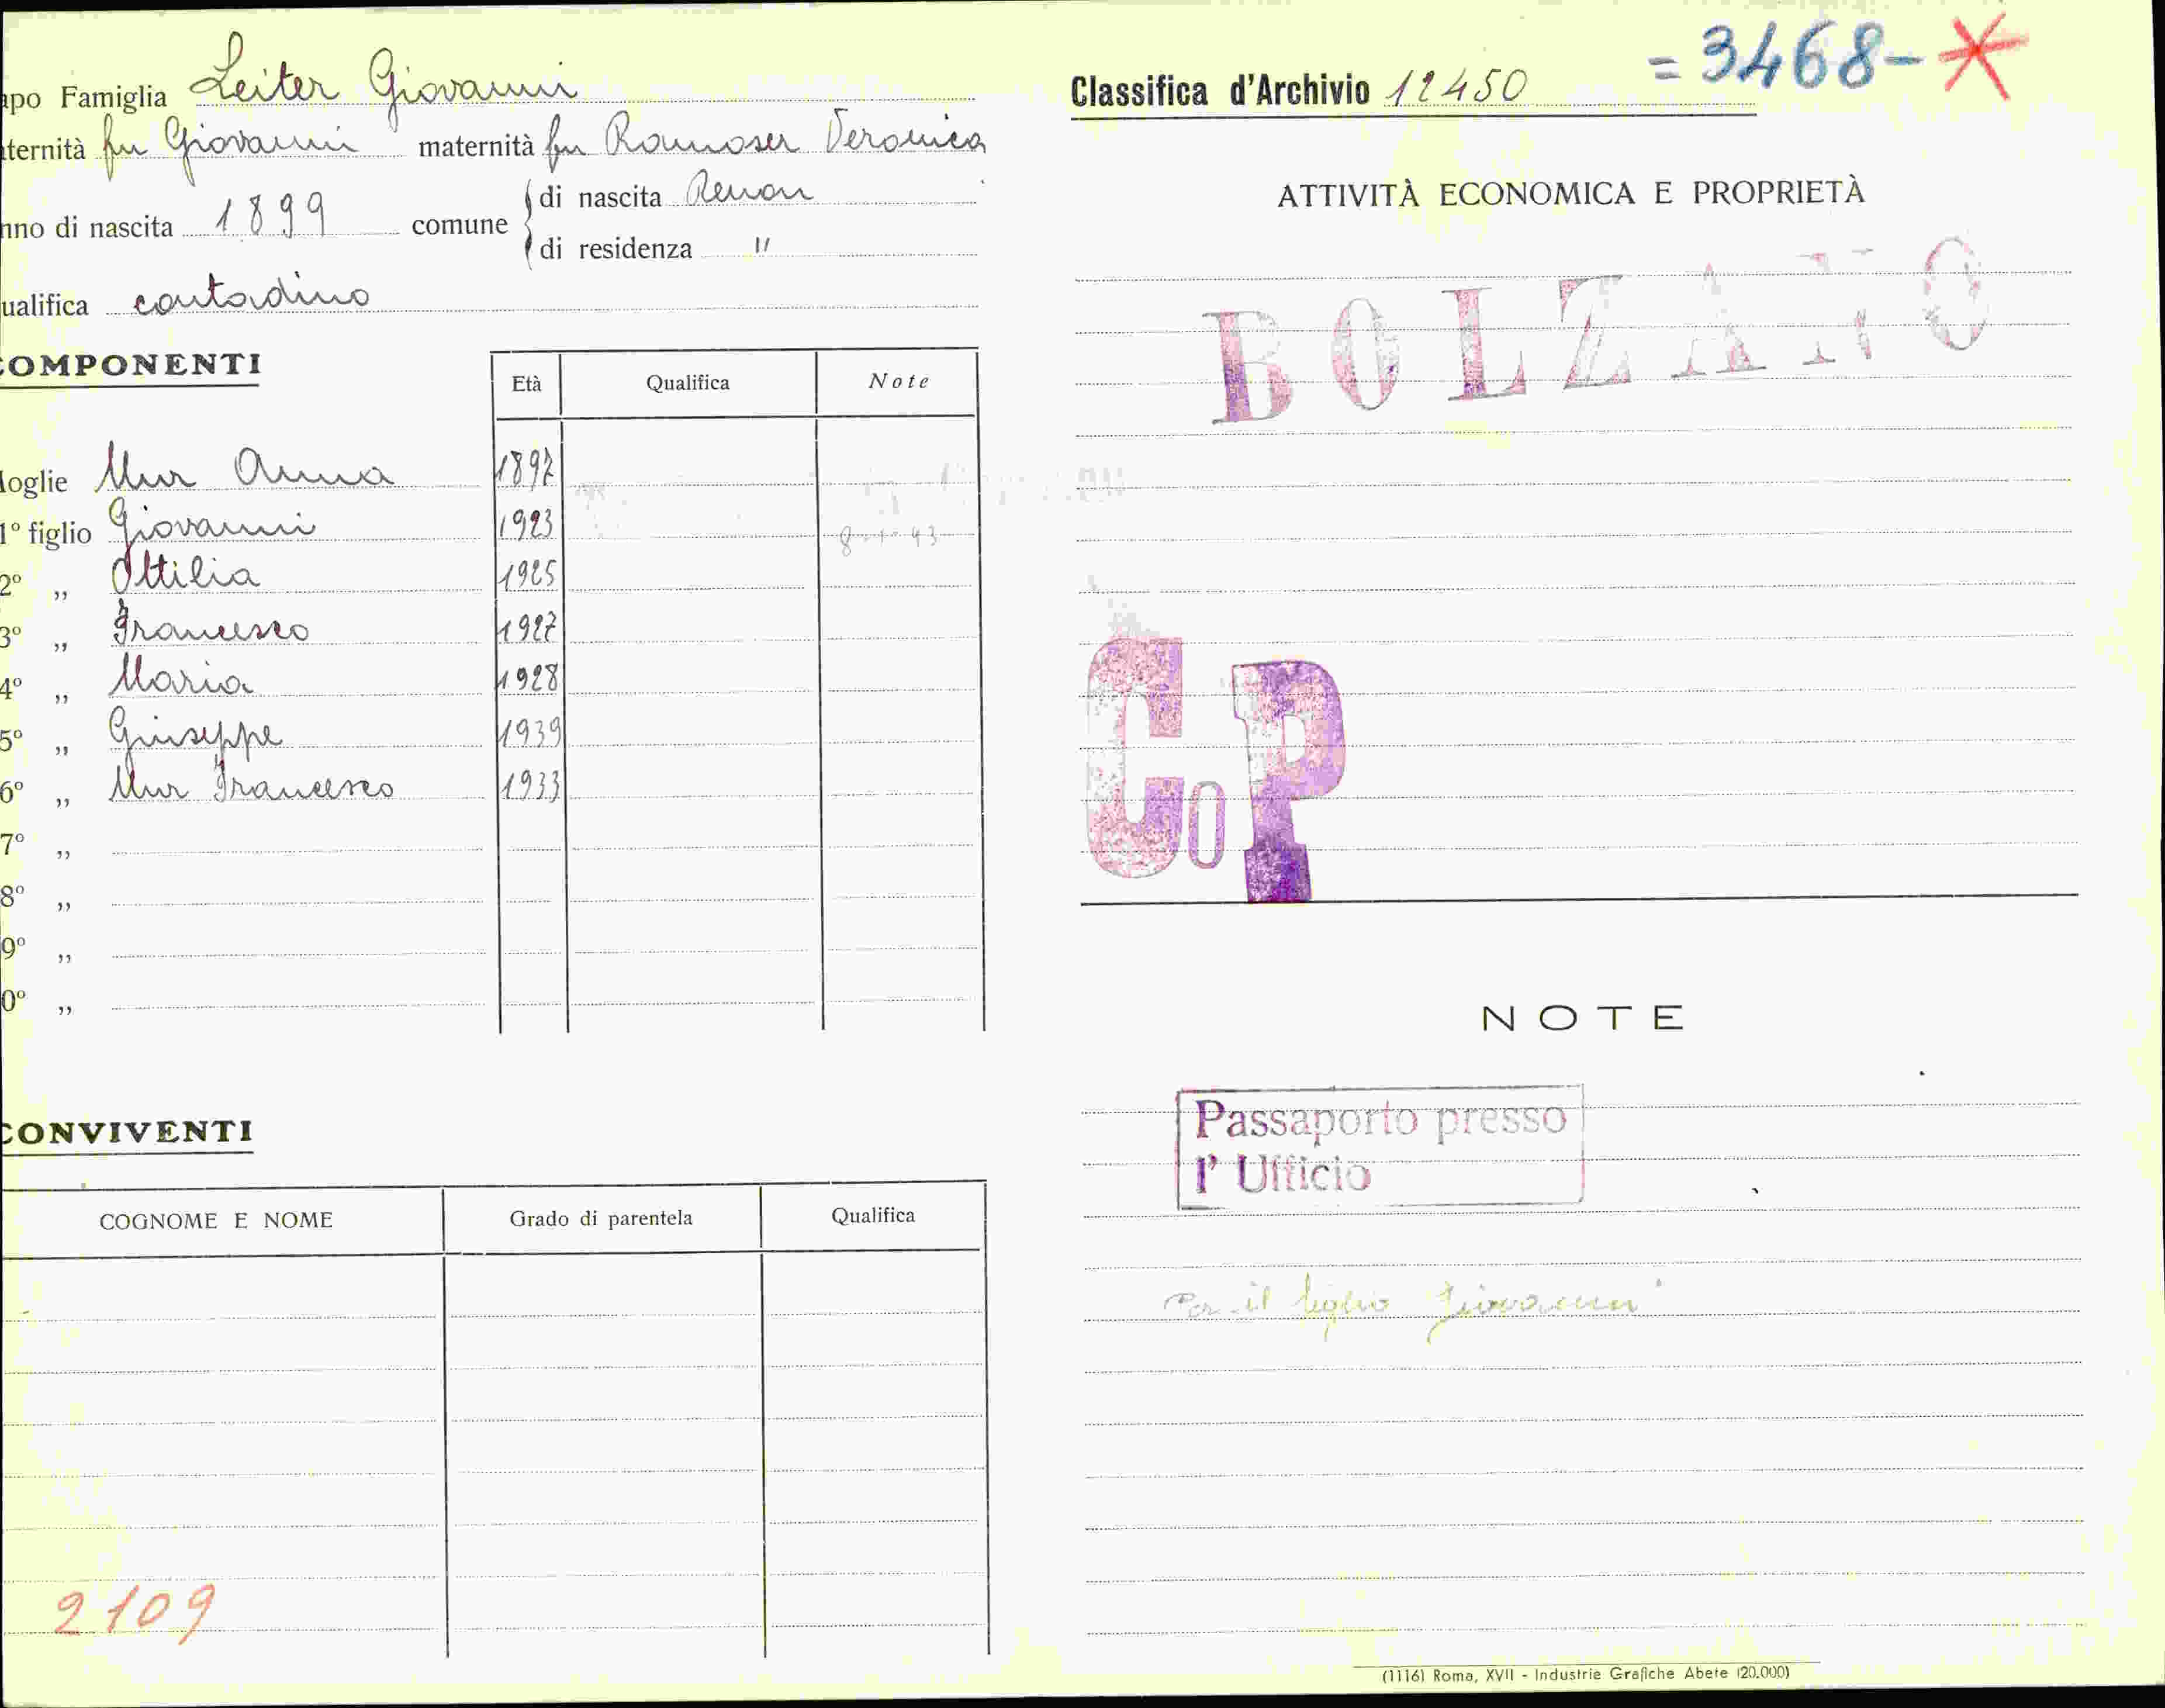 apo Famiglia Leiter Giovanni
aternità fu Giovanni maternità fu Ramoser Veronica
nno di nascita 1899 comune di nascita Renon
di residenza "
ualifica contadino
COMPONENTI
Età Qualifica Note
oglie Mur Anna 1897
1° figlio Giovanni 1923 8-1-43
2° „ Ottilia 1925
3° „ Francesco 1927
4° „ Maria 1928
5° „ Giuseppe 1939
6° „ Mur Francesco 1933
7° „
8° „
9° „
0° „
CONVIVENTI
COGNOME E NOME Grado di parentela Qualifica
2109
= 3468-
Classifica d'Archivio 12450
ATTIVITÀ ECONOMICA E PROPRIETÀ
BOLZANO
CoP
NOTE
Passaporto presso
l' Ufficio
Per il figlio Giovanni
(1116) Roma, XVII - Industrie Grafiche Abete (20.000)